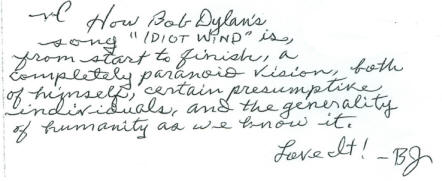 How Bob Dylan's
song "IDIOT WIND" is,
from start to finish, a
completely paranoid vision, both
of himself, certain presumptive
individuals, and the generality
of humanity as we know it.
Love It! – BJ